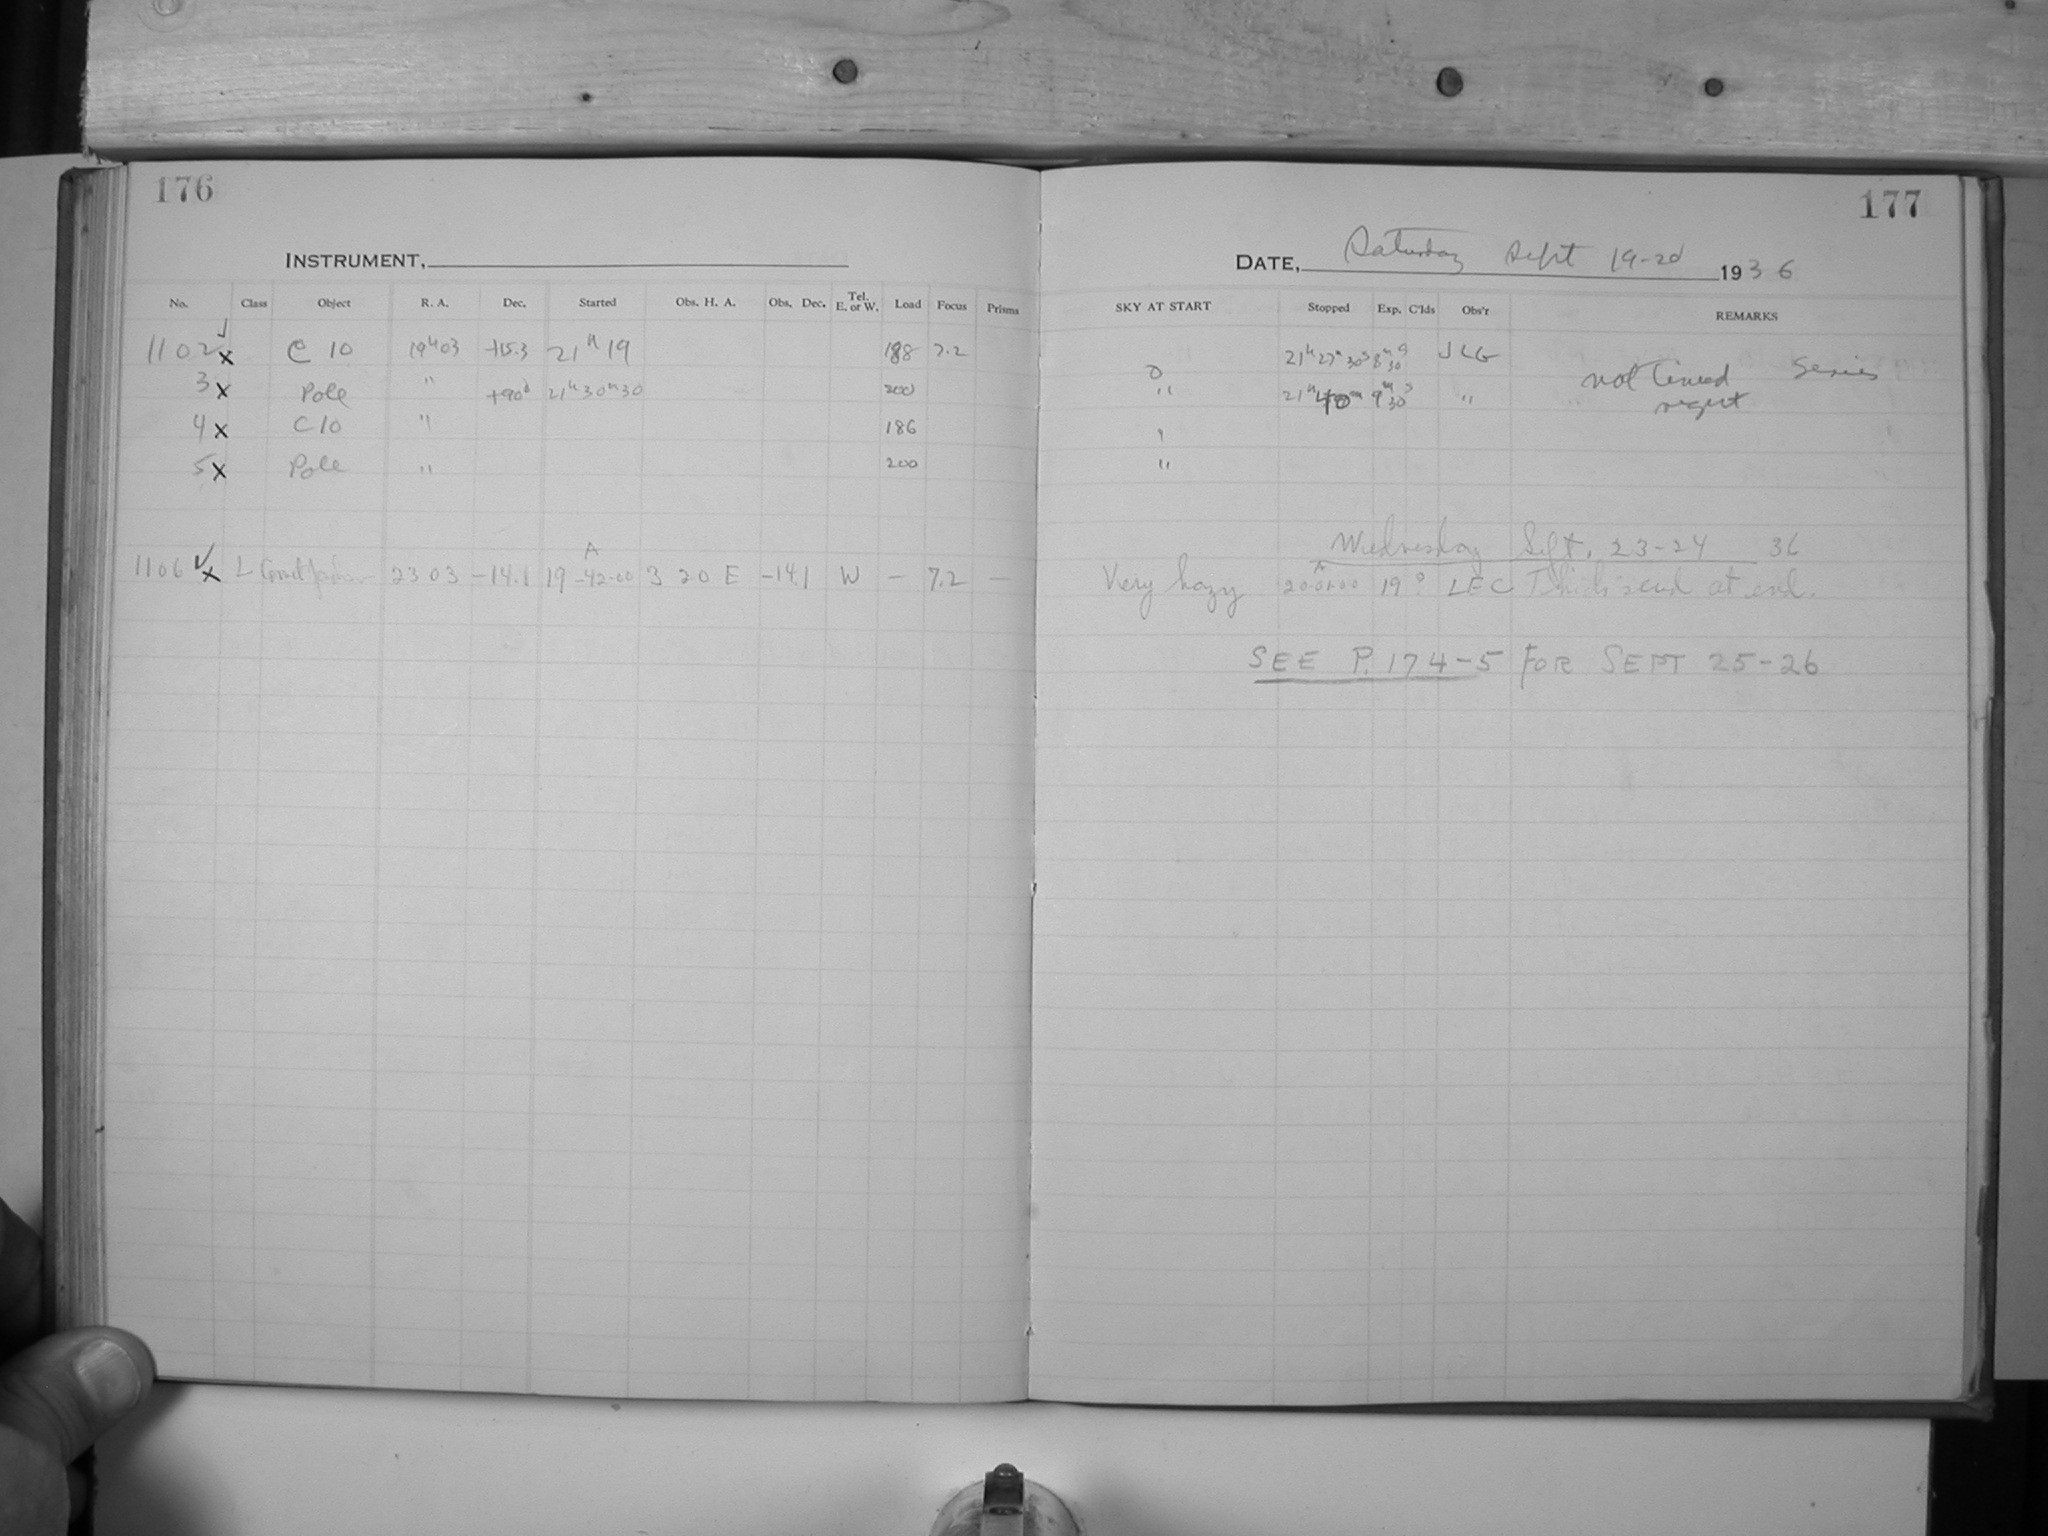 176
INSTRUMENT,
No. Class Object R. A. Dec. Started Obs. H. A. Obs. Dec. Tel. E. or W. Load Focus Prisms
1102 x C 10 19h03 +15.3 21h19 188 7.2
3 x Pole " +90° 21h30m30 200
4 x C 10 " 186
5 x Pole " 200
1106 ✓x L Comet 23 03 -14.1 19-42-00 3 20 E -14.1 W — 7.2 —
177
DATE, Saturday Sept 19-20 1936
SKY AT START Stopped Exp. C'lds Obs'r REMARKS
0 21h27m30s 8m30s JLG not timed Series
" 21h40m 9m30s " right
"
Wednesday Sept. 23-24 36
Very hazy 20-01-00 19 LEC at end.
SEE P. 174-5 FOR SEPT 25-26